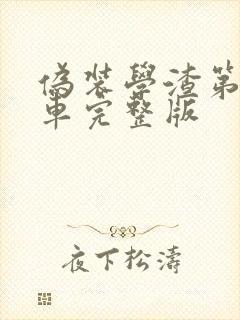 偽裝學渣第
車完整版
夜下松濤